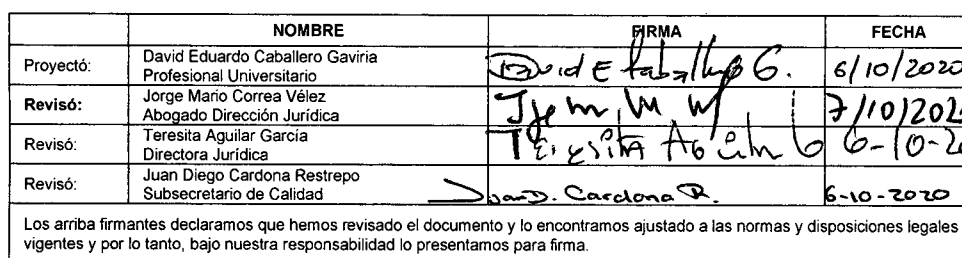 NOMBRE FIRMA FECHA
Proyectó: David Eduardo Caballero Gaviria
Profesional Universitario
David E Caballero G. 6/10/2020
Revisó: Jorge Mario Correa Vélez
Abogado Dirección Jurídica
7/10/202
Revisó: Teresita Aguilar García
Directora Jurídica
Teresita Aguilar G 6-10-20
Revisó: Juan Diego Cardona Restrepo
Subsecretario de Calidad
Juan D. Cardona R. 6-10-2020
Los arriba firmantes declaramos que hemos revisado el documento y lo encontramos ajustado a las normas y disposiciones legales
vigentes y por lo tanto, bajo nuestra responsabilidad lo presentamos para firma.